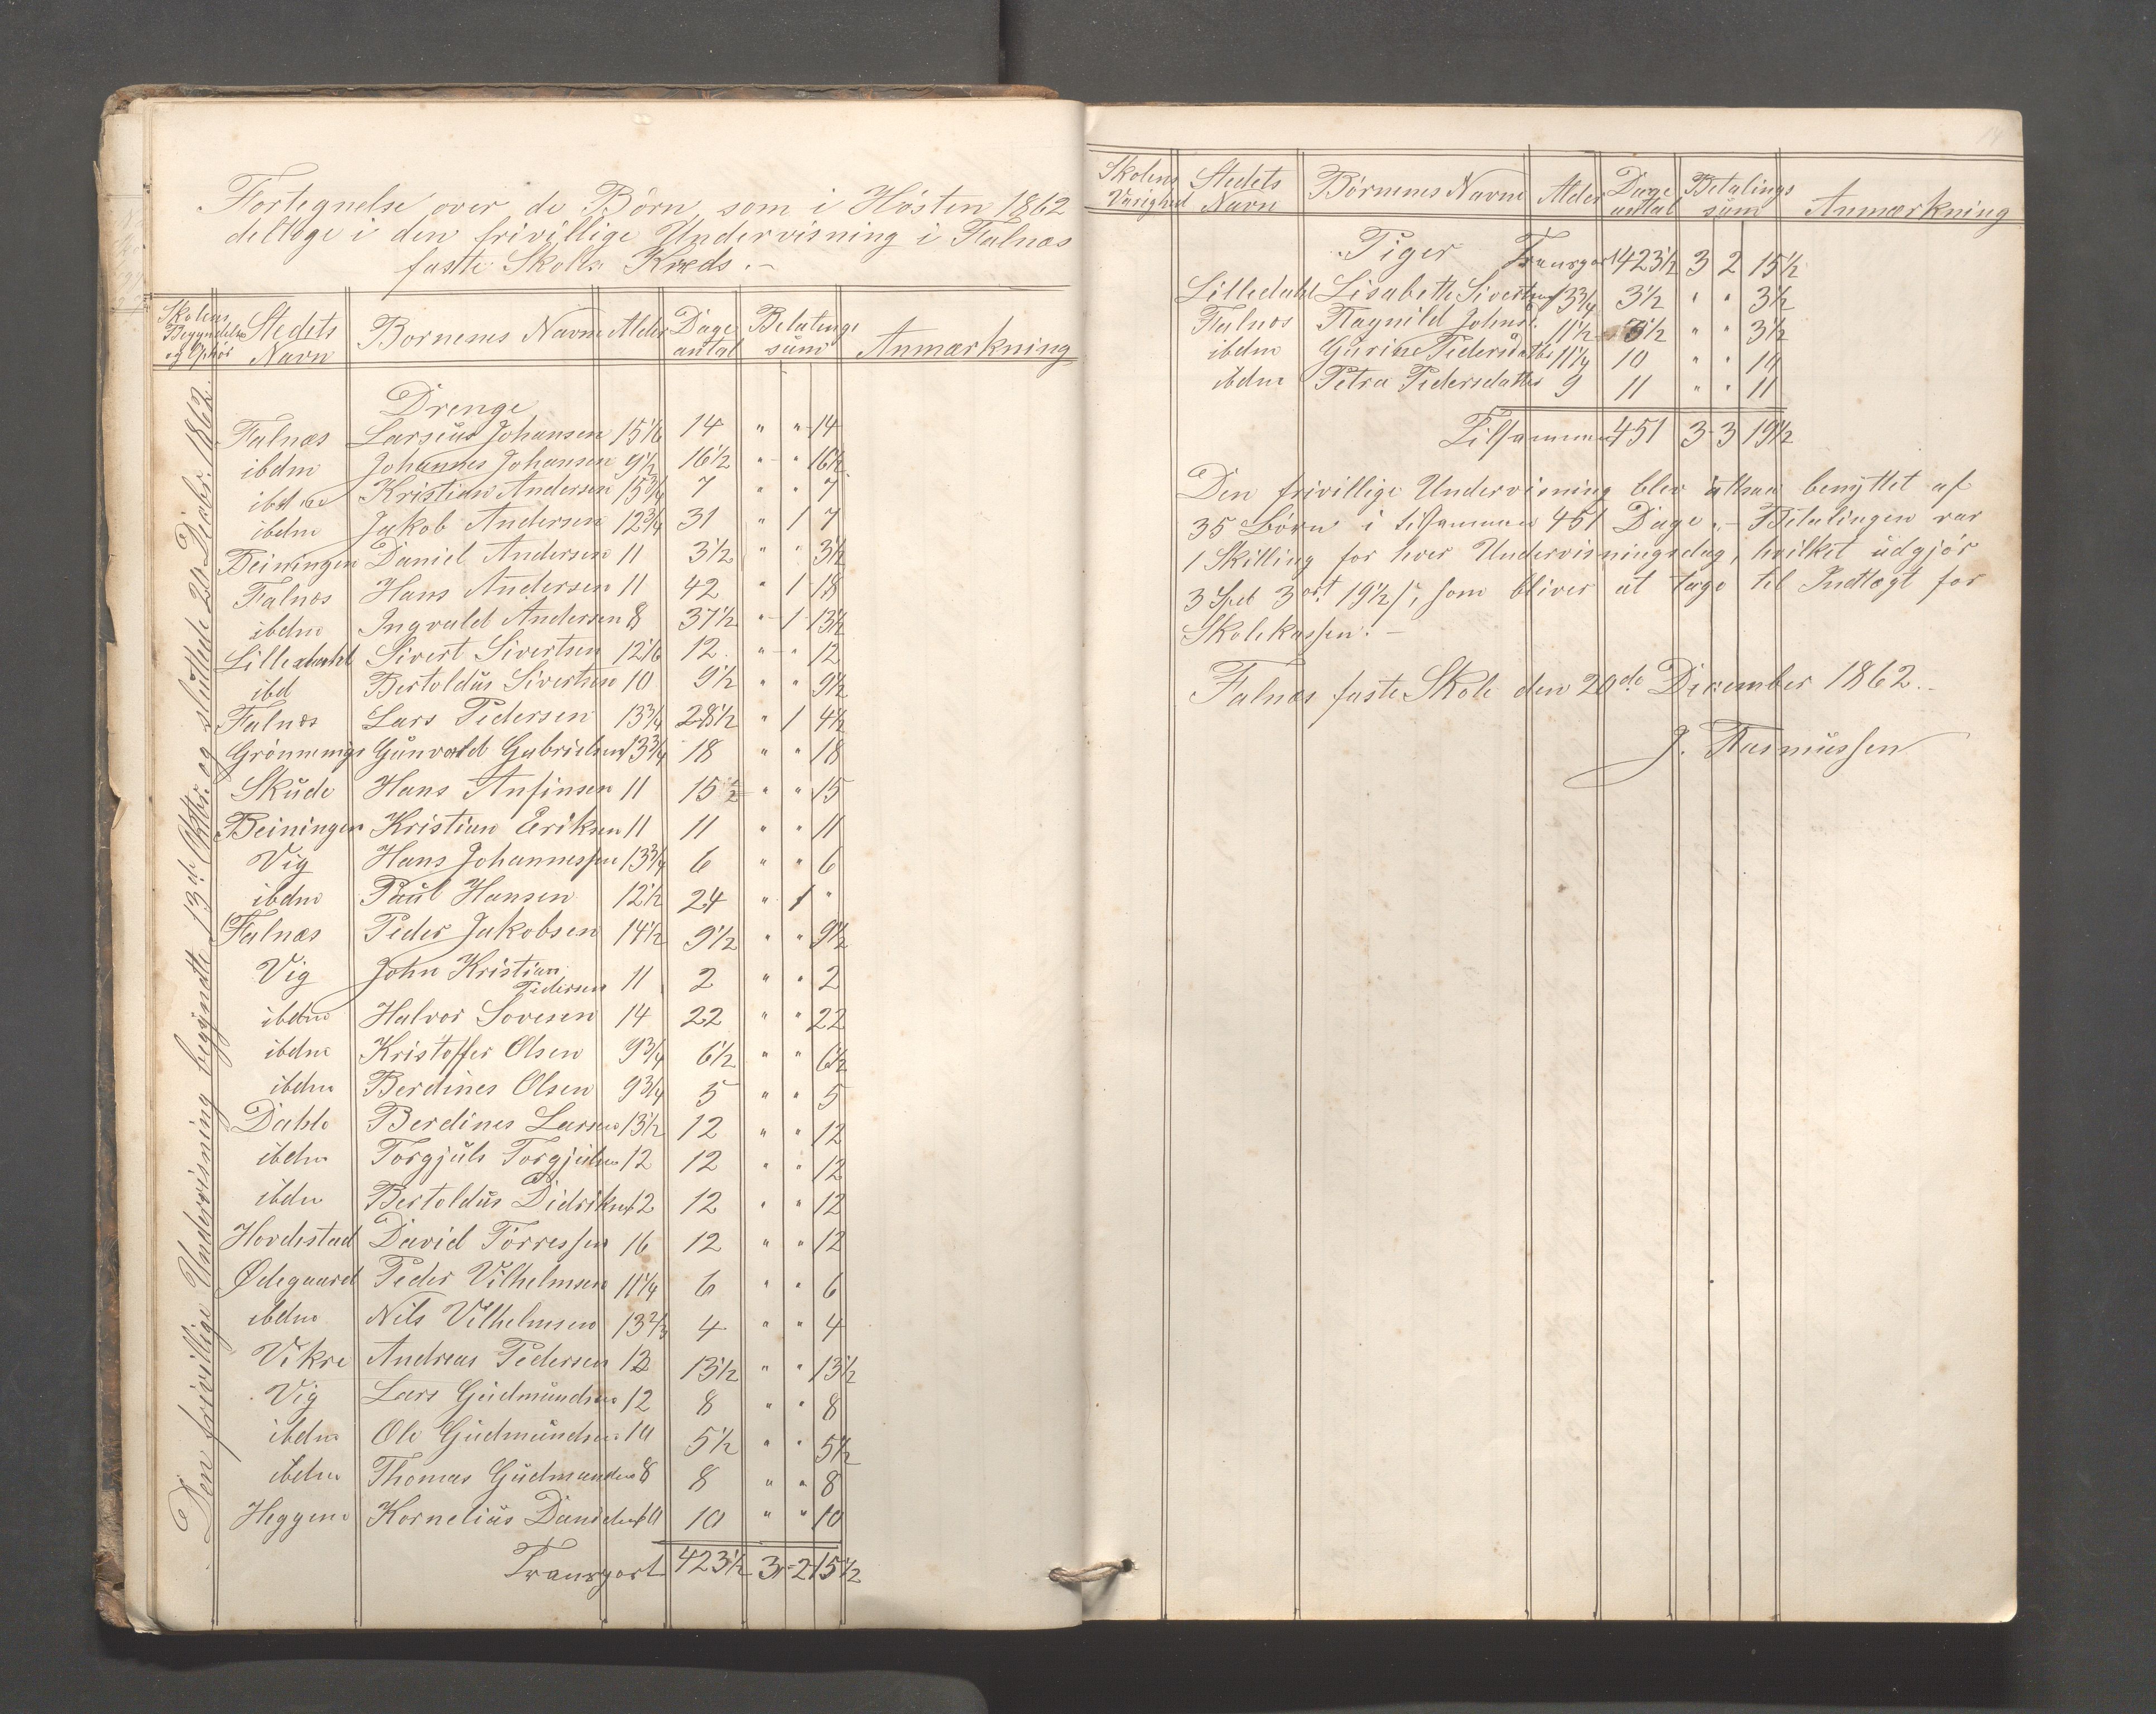 Fortegnelse over de Börn som i Hösten 1862
deltoge i den frivillige Undervisning i Falnæs
faste Skoles Kreds.-
Skolens Begyndelse og Ophör | Stedets Navn | Bornenes Navne | Alder | Dage antal | Betalings sum | Anmærkning
Den frivillige Undervisning begyndte 13de Oktbr. og sluttede 20 Decbr. 1862.
Drenge
Falnæs Larseus Johansen 15 1/6 14 " " 14
ibdm Johannes Johansen 9 1/2 16 1/2 " " 16 1/2
ibdm Kristian Andersen 15 3/4 7 " " 7
ibdm Jakob Andersen 12 3/4 31 " 1 7
Beiningen Daniel Andersen 11 3 1/2 " " 3 1/2
Falnæs Hans Andersen 11 42 " 1 18
ibdm Ingvald Andersen 8 37 1/2 " 1 13 1/2
Lilledahl Sivert Sivertsen 12 1/6 12 " " 12
ibd Bertoldus Sivertsen 10 9 1/2 " " 9 1/2
Falnæs Lars Pedersen 13 3/4 28 1/2 " 1 4 1/2
Grönnings Gunvald Gabrielsen 13 3/4 18 " " 18
Skude Hans Anfinsen 11 15 " " 15
Beiningen Kristian Eriksen 11 11 " " 11
Vig Hans Johannessen 13 3/4 6 " " 6
ibdm Paul Hansen 12 1/2 24 " 1 "
Falnæs Peder Jakobsen 14 1/2 9 1/2 " " 9 1/2
Vig John Kristian Pedersen 11 2 " " 2
ibdm Halvor Sovesen 14 22 " " 22
ibdm Kristoffer Olsen 9 3/4 6 1/2 " " 6 1/2
ibdm Berdines Olsen 9 3/4 5 " " 5
Dahle Berdines Larsen 13 1/2 12 " " 12
ibdm Torgjuls Torgjulsen 12 12 " " 12
ibdm Bertoldus Didriksen 12 12 " " 12
Hovdestad David Törressen 16 12 " " 12
Ödegaard Peder Vilhelmsen 11 1/4 6 " " 6
ibdm Nils Vilhelmsen 13 2/3 4 " " 4
Vikre Andreas Pedersen 12 13 1/2 " " 13 1/2
Vig Lars Gudmundsen 12 8 " " 8
ibdm Ole Gudmundsen 10 5 1/2 " " 5 1/2
ibdm Thomas Gudmundsen 8 8 " " 8
Heggene Kornelius Danielsen 10 10 " " 10
Transport 423 1/2 3 - 2 - 15 1/2
Skolens Varighed | Stedets Navn | Börnenes Navne | Alder | Dage antal | Betalings sum | Anmærkning
Piger Transport 423 1/2 3 2 15 1/2
Lilledahl Lisabette Sivertsen 13 3/4 3 1/2 " " 3 1/2
Falnæs Ragnild Johnsd. 11 1/2 3 1/2 " " 3 1/2
ibdm Gurine Pedersdatter 11 1/4 10 " " 10
ibdm Petra Pedersdatter 9 11 " " 11
Tilsammen 451 3 - 3 19 1/2
Den frivillige Undervisning blev altsaa benyttet af
35 Börn i tilsammen 451 Dage.- Betalingen var
1 Skilling for hver Undervisningsdag, hvilket udgjör
3 Spd 3 ort 19 1/2 s, som bliver at tage til Indtægt for
Skolekassen.-
Falnæs faste Skole den 20de December 1862.-
J. Rasmussen